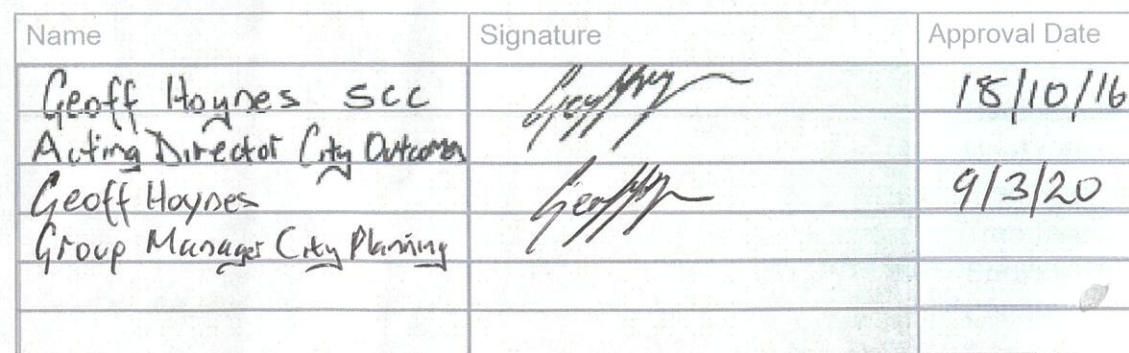 Name Signature Approval Date
Geoff Hoynes SCC 18/10/16
Acting Director City Outcomes
Geoff Hoynes 9/3/20
Group Manager City Planning